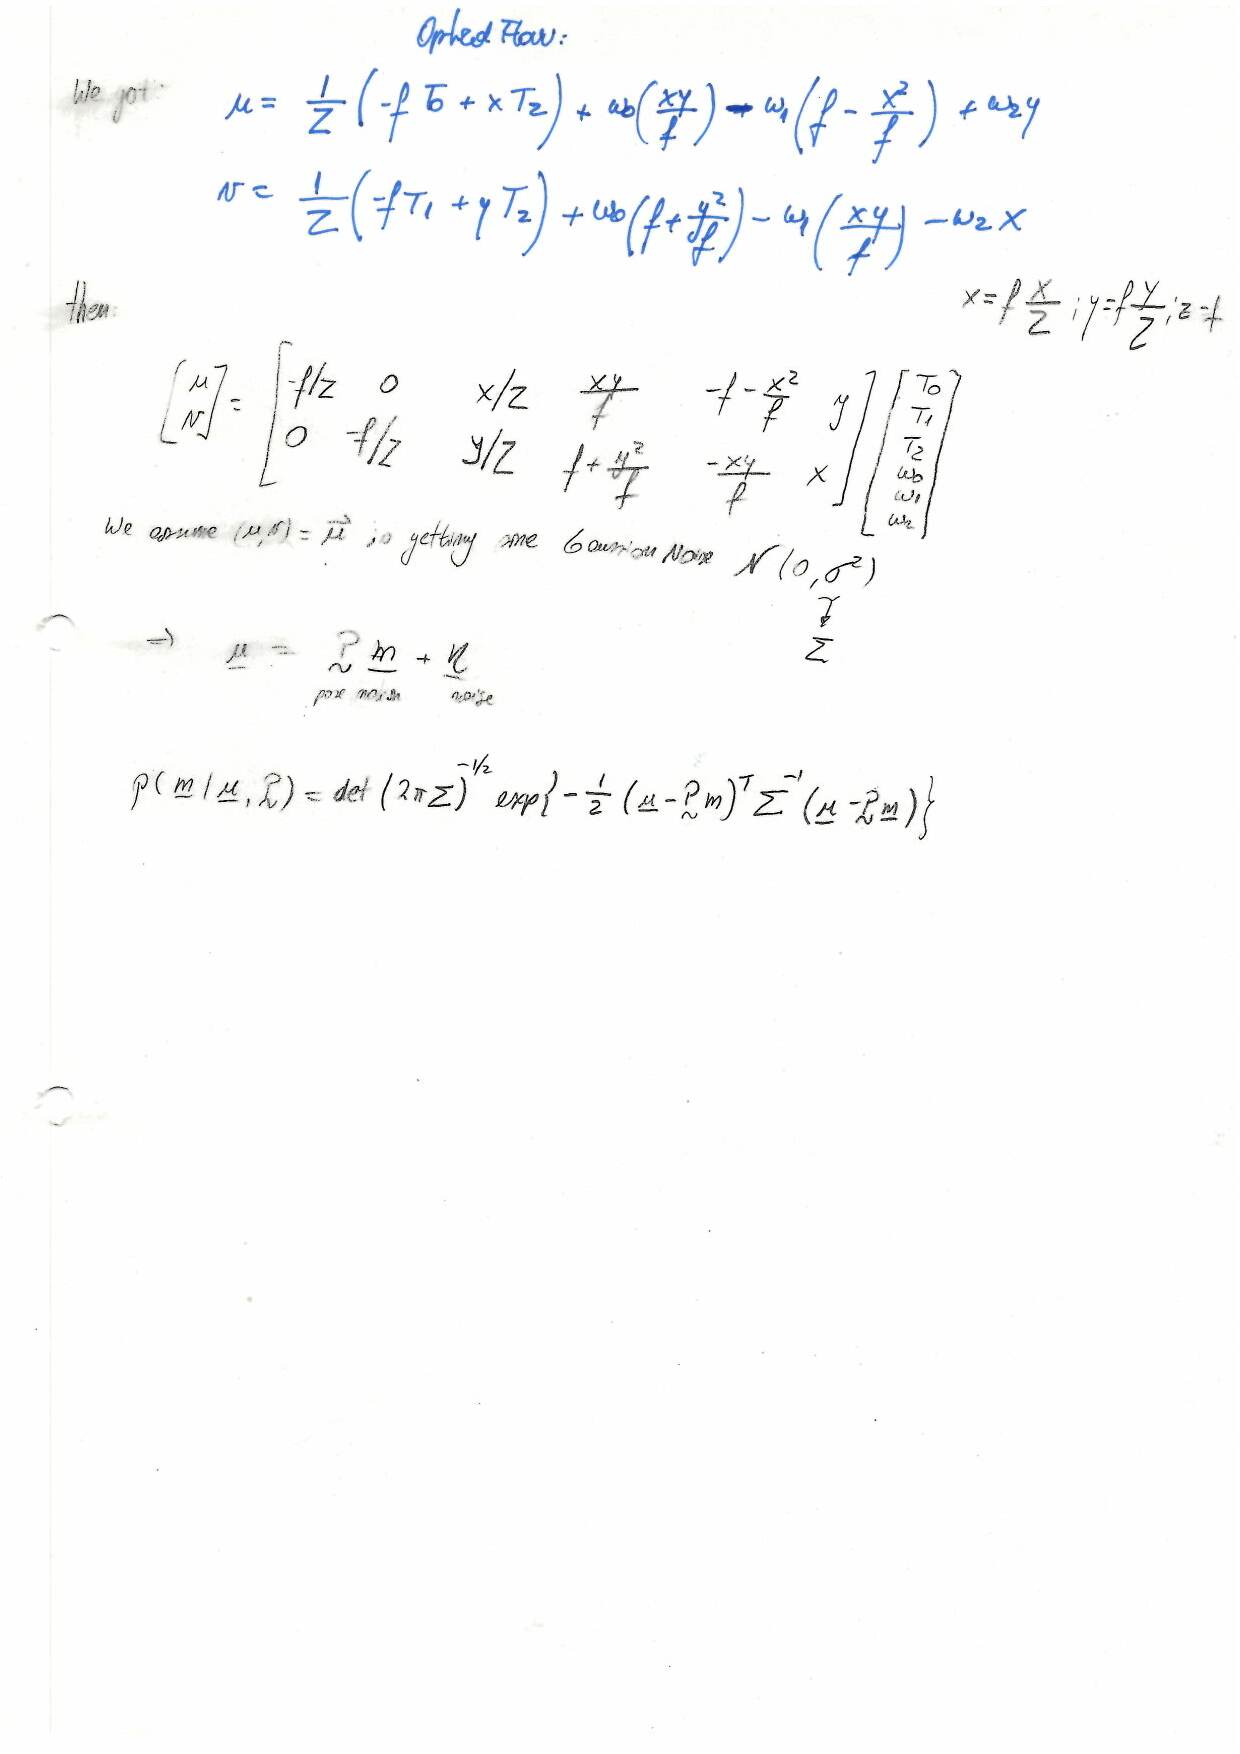 Optical Flow:
We got: u = 1/Z (-f T0 + x T2) + ω0 (xy/f) - ω1 (f - x²/f) + ω2 y
v = 1/Z (-f T1 + y T2) + ω0 (f + y²/f) - ω1 (xy/f) - ω2 x
then:
x = f X/Z ; y = f Y/Z ; z = f
[u v] = [-f/Z 0 x/Z xy/f -f - x²/f y
0 -f/Z y/Z f + y²/f -xy/f x] [T0 T1 T2 ω0 ω1 ω2]
We assume (u,v) = u⃗ is getting some Gaussian Noise N(0, σ²)
Σ
⇒ u = P m + n
noise
p(m | u, P) = det (2πΣ)^-1/2 exp{ -1/2 (u - P m)^T Σ^-1 (u - P m) }